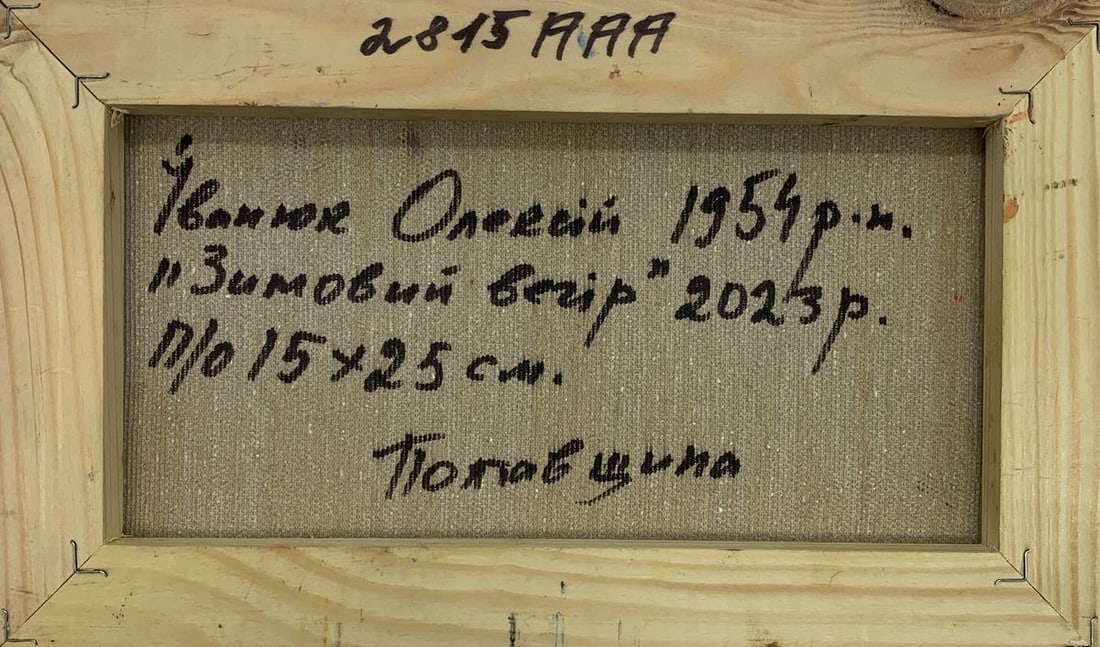 2815 AAA
Іванюк Олексій 1954 р.н.
"Зимовий вечір" 2023 р.
П/о 15х25 см.
Полтавщина